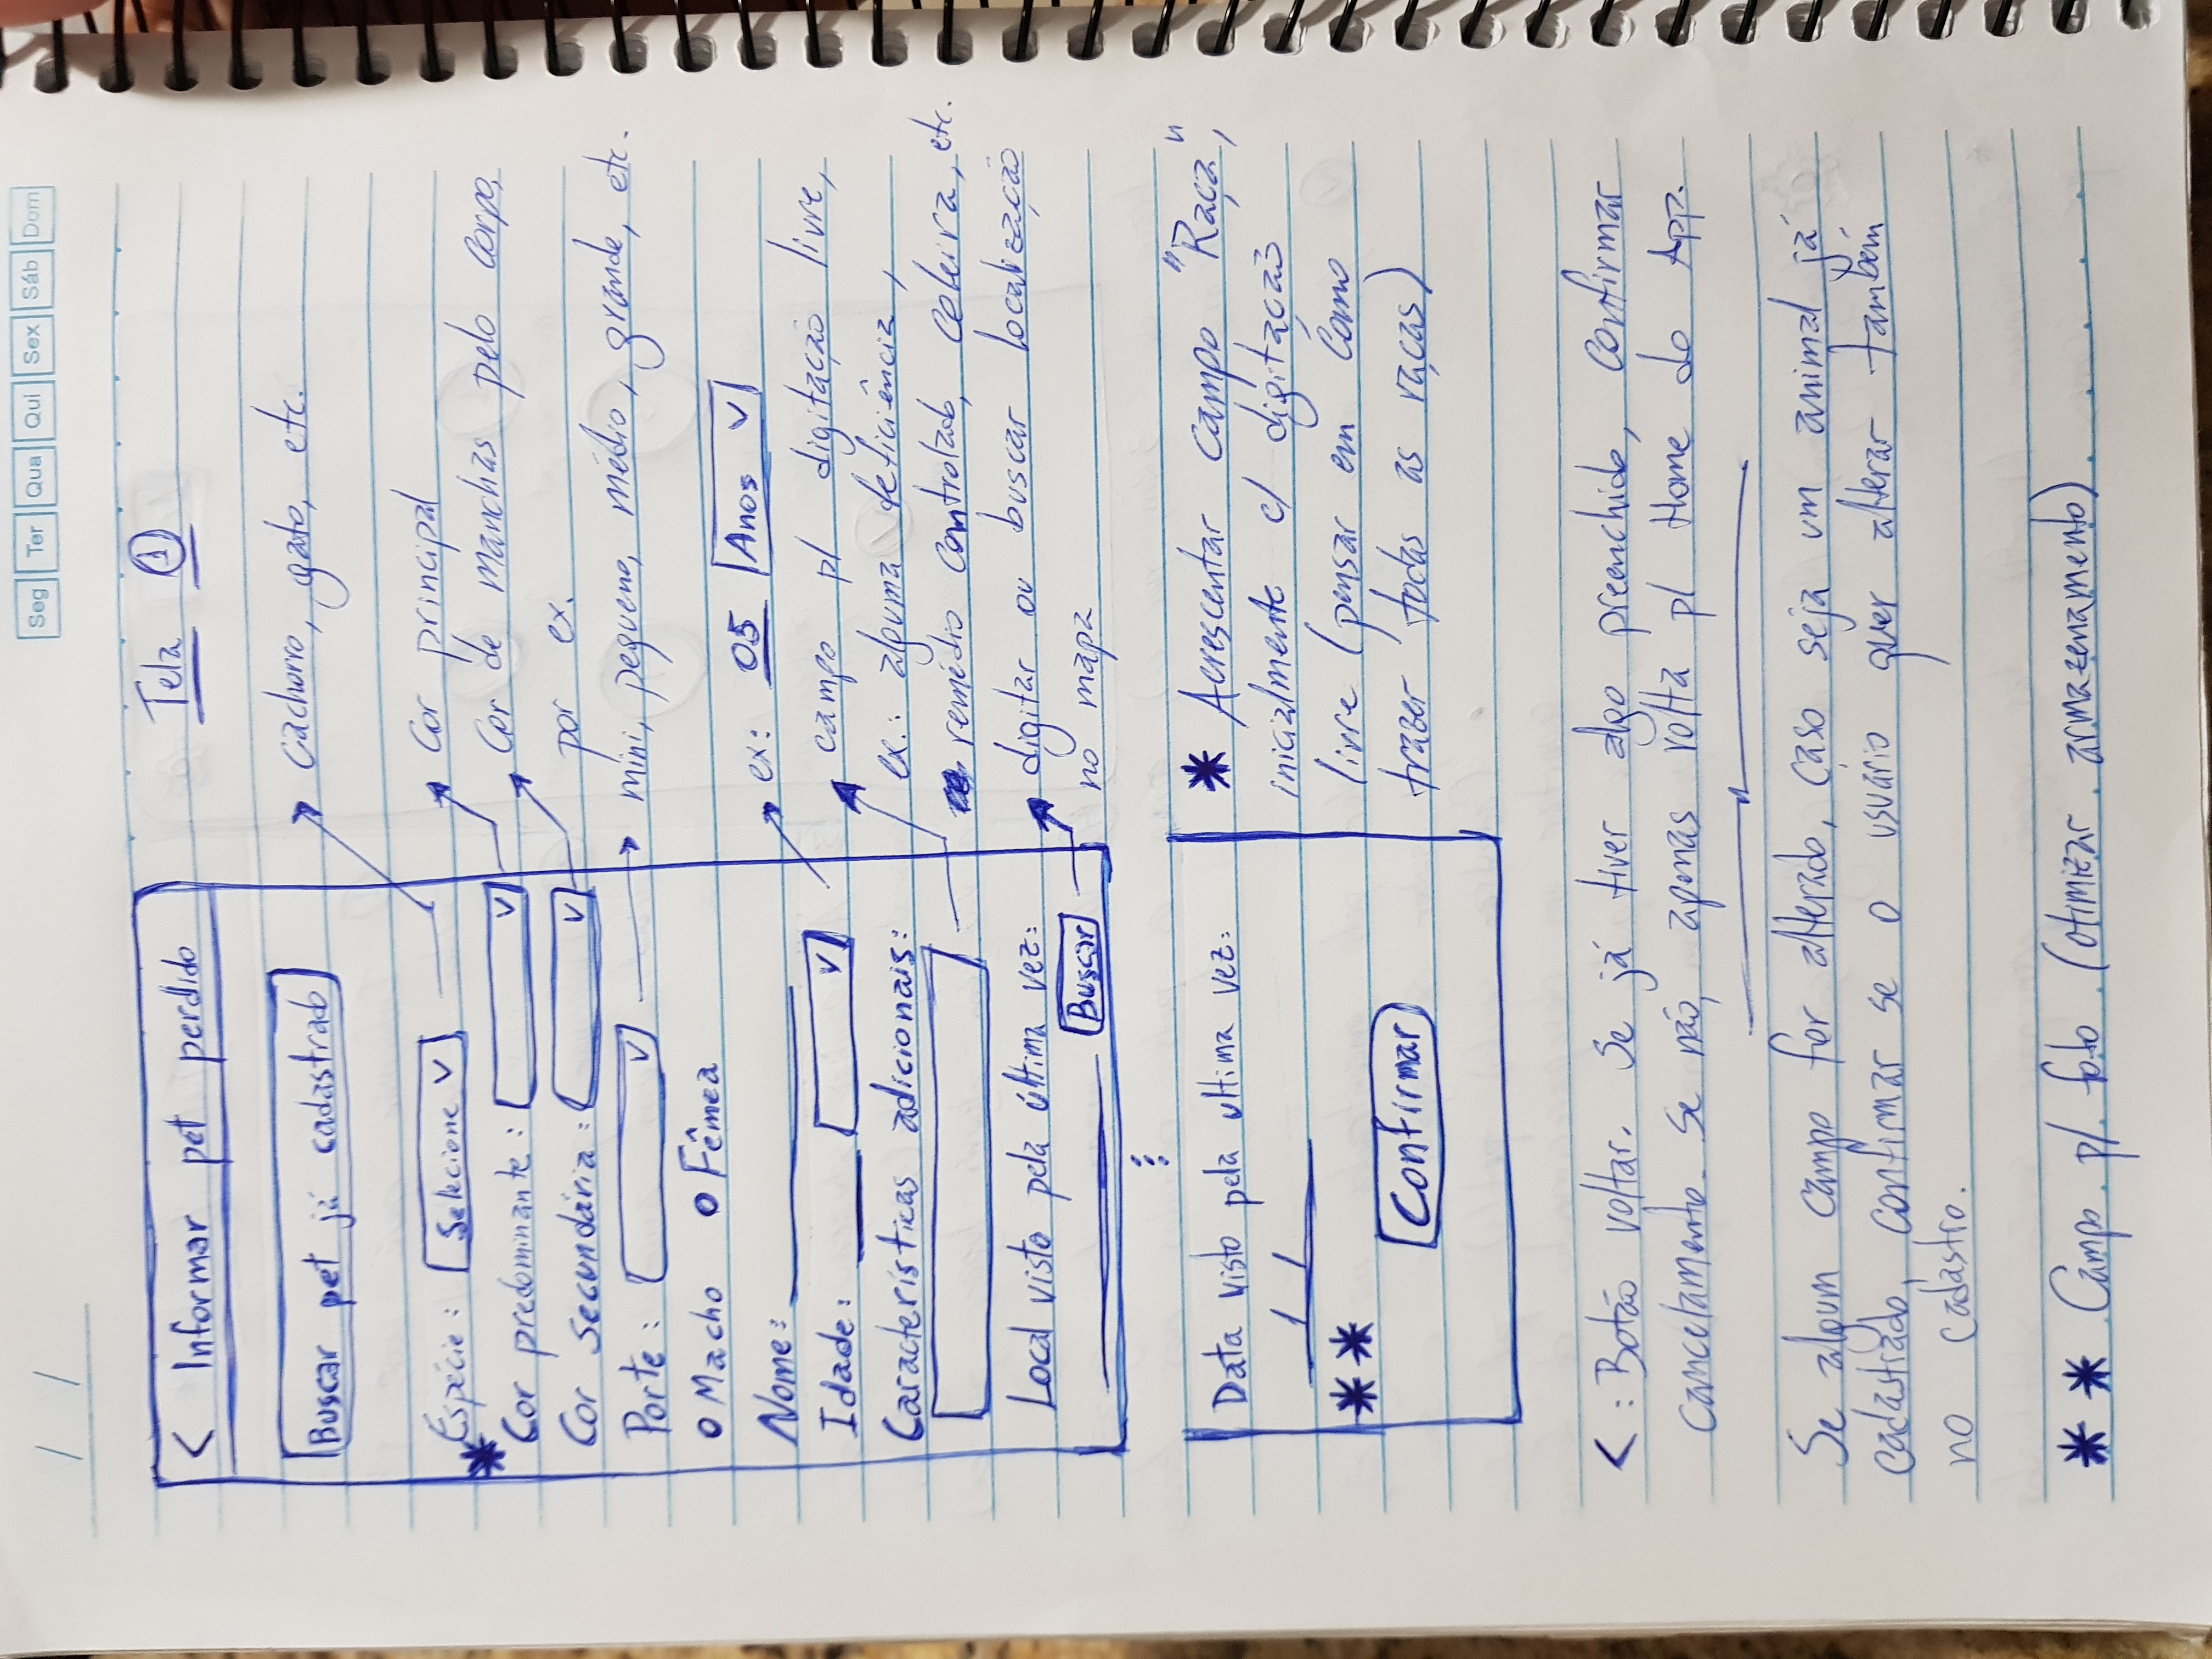 Seg Ter Qua Qui Sex Sáb Dom
/ /
Tela 1
< Informar pet perdido
Buscar pet já cadastrado
cachorro, gato, etc.
Espécie: Selecione v
*
Cor principal
Cor predominante: v
Cor de manchas pelo corpo,
por ex.
Cor secundária: v
Porte: v
mini, pequeno, médio, grande, etc.
o Macho o Fêmea
Nome:
Idade: v
ex: 05 Anos v
Características adicionais:
campo p/ digitação livre,
ex.: alguma deficiência,
remédio controlado, coleira, etc.
Local visto pela última vez:
Buscar
digitar ou buscar localização
no mapa
Data visto pela ultima vez:
/ /
* *
Confirmar
* Acrescentar campo "Raça",
inicialmente c/ digitação
livre (pensar em como
trazer todas as raças)
< : Botão voltar. Se já tiver algo preenchido, confirmar
cancelamento. Se não, apenas volta p/ Home do App.
Se algum campo for alterado, caso seja um animal já
cadastrado, confirmar se o usuário quer alterar também
no cadastro.
* * Campo p/ foto (otimizar armazenamento)